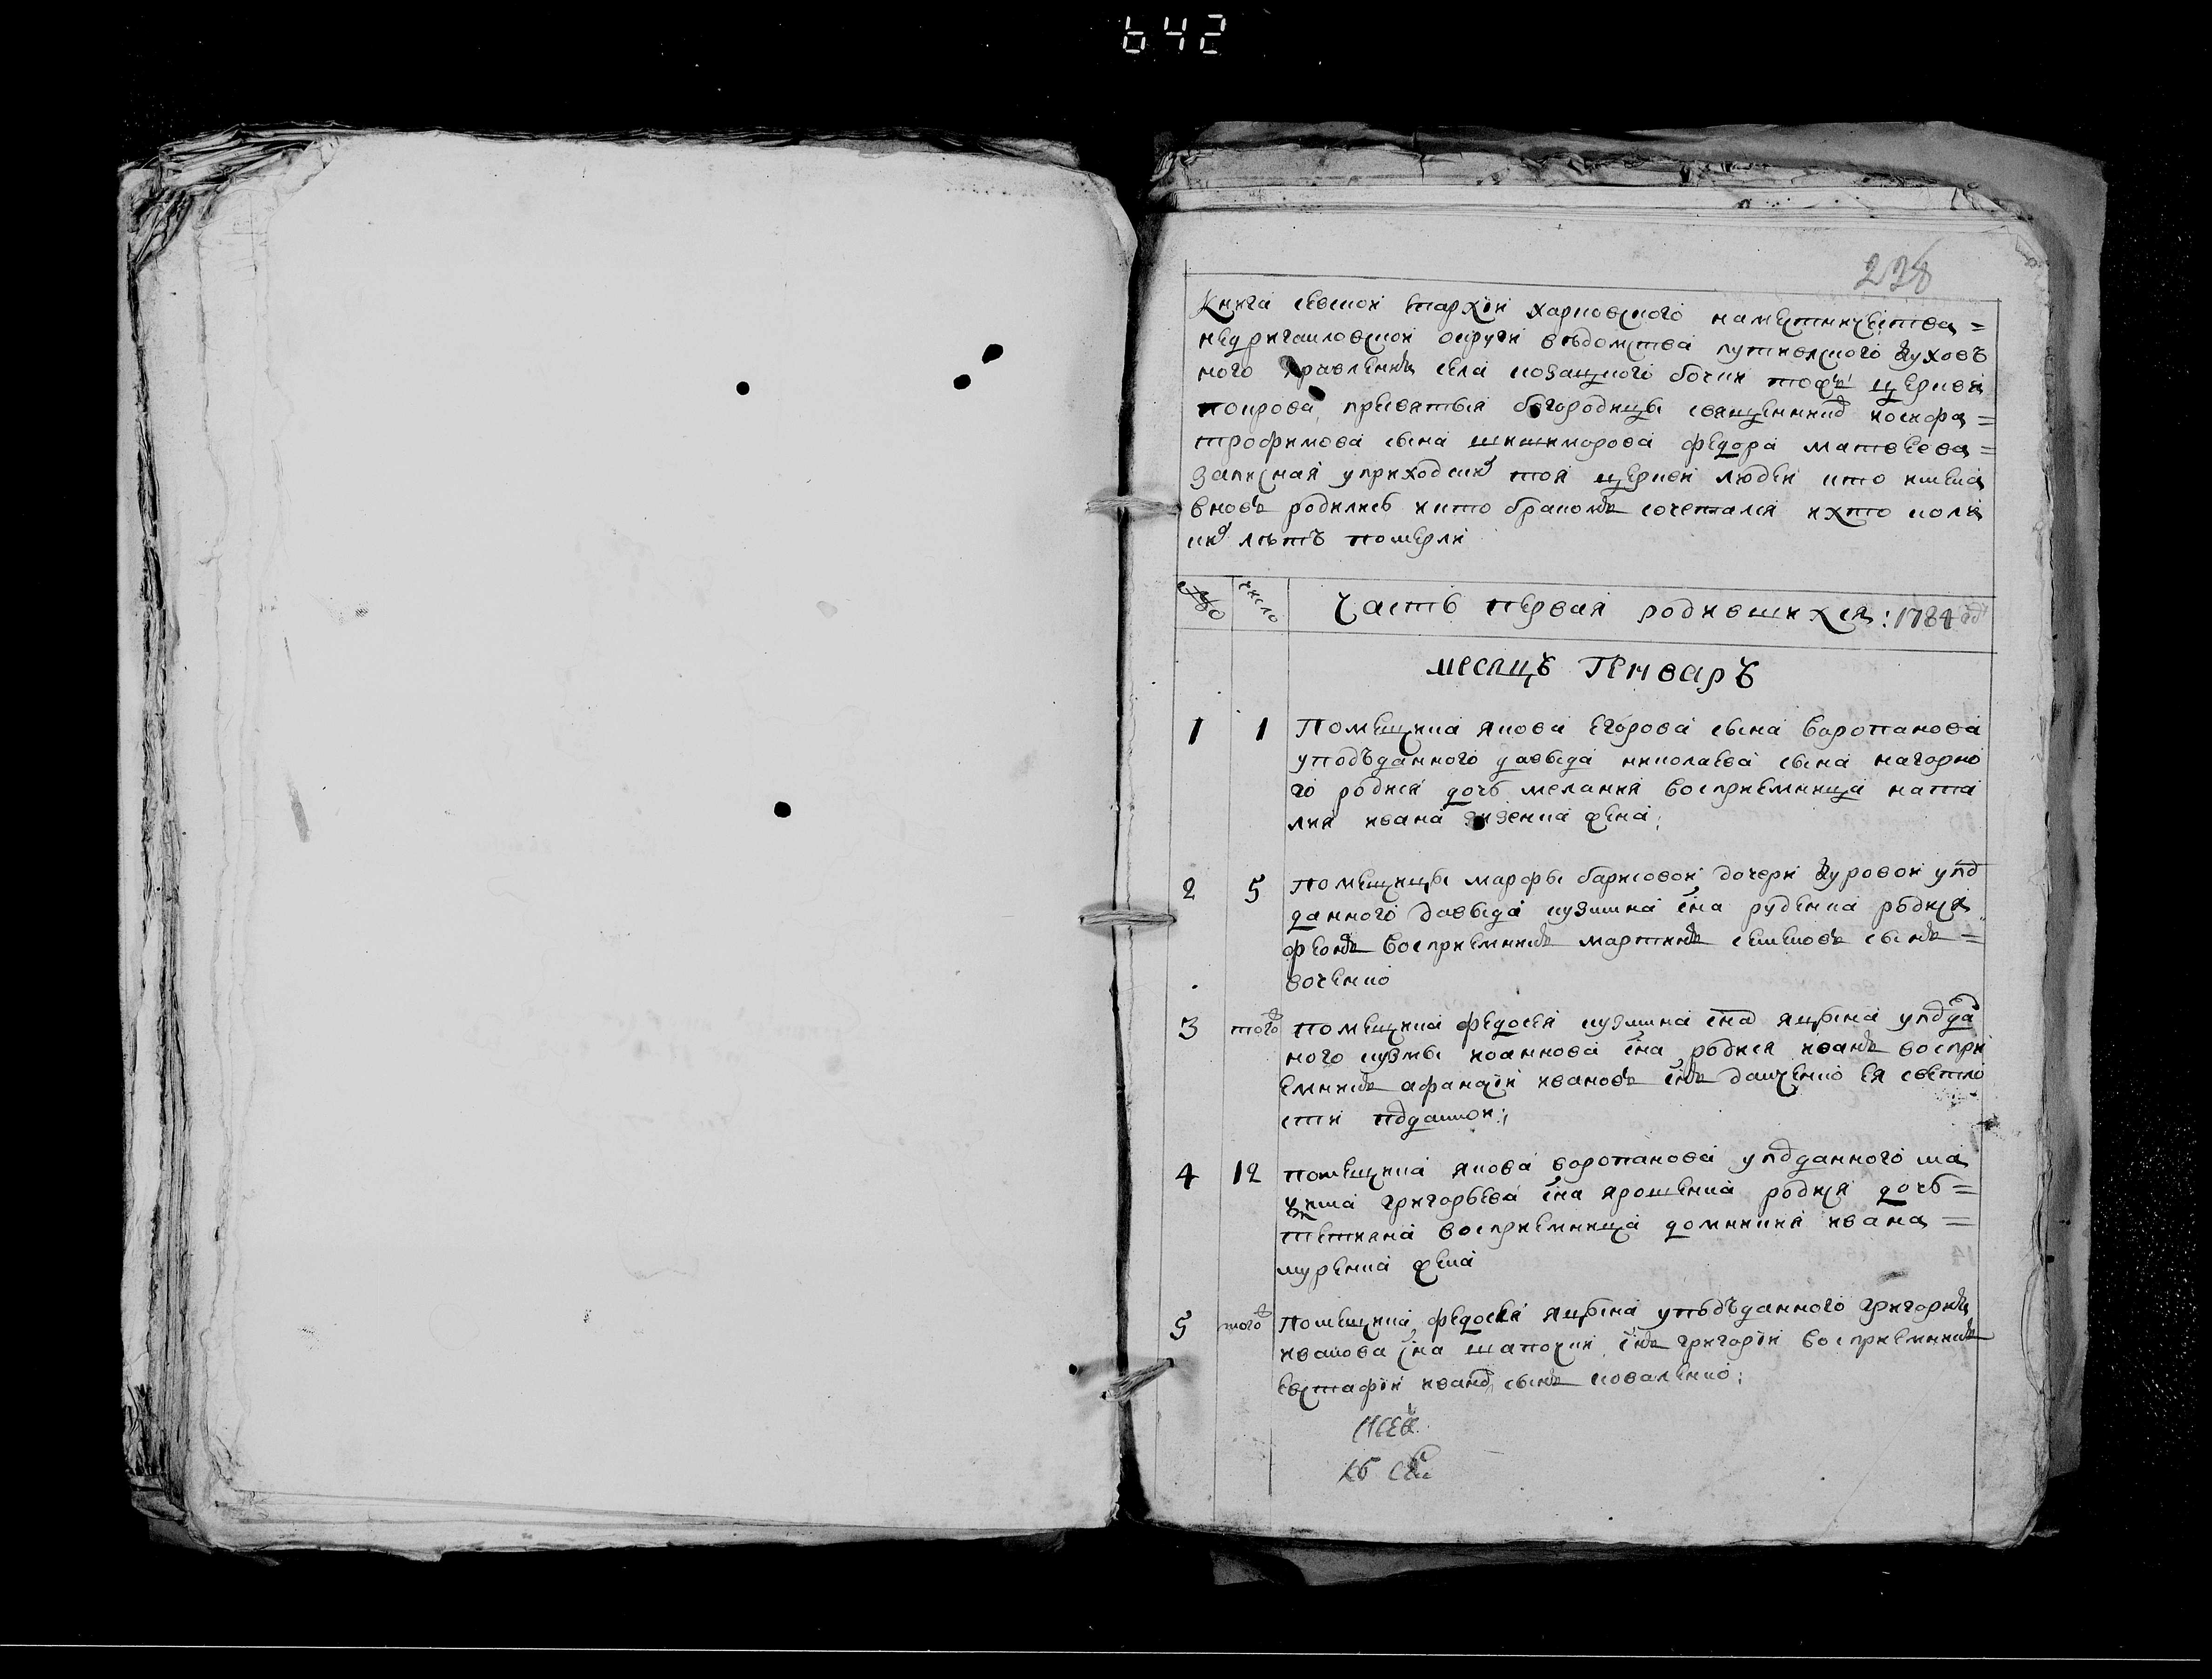 642
238
Книга севской епархіи харковского наместничества =
недригаиловской округи вѣдомства путивлского духовъ
ного правления села козацкого бочки тояжъ церкви
покрова пресвятыя богородицы священник иосифа =
трофимова сына шишкиморова федора матвеева =
записная уприходских тоя церкви людеи кто имена
вновь родилисъ икто бракомъ сочеталися ихто коли
ких лѣтъ померли
число
Часть первая родившихся: 1784 год
месяцъ Генварь
1 1 Помещика якова егорова сына воропанова
уподъданного давыда николаева сына нагорно
го родися дочь мелания восприемница ната
лия ивана жена:
2 5 помещицы марфы барисовои дочери Дуровои упод
данного давыда кузмина сна руденка родися
феонъ восприемникъ мартинъ семеновъ сынъ =
вовченко
3 того помещика федосея кузмина сна яцына упдда
ного кузмы иоаннова сна родися иванъ воспри
емникъ афанасіи ивановъ снъ даценко ея светло
сти пддашои:
4 12 помещика якова воропанова упдданного ма
ѯима григорьева сна ярошенка родися дочь =
тетияна восприемница доминикия ивана =
муренка жена
5 того Помещика федосея яцына уподъданного григория
иванова сна шапочки снъ григоріи восприемникъ
евстафіи иванов сынъ коваленко: